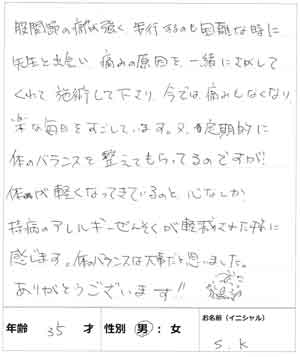 股関節の痛が強く、歩行するのも困難な時に
先生と出会い、痛みの原因を一緒にさがして
くれて施術して下さり、今では痛みもなくなり、
楽な毎日をすごしています。又、定期的に
体のバランスを整えてもらってるのですが、
体が軽くなってきているのと、心なしか
持病のアレルギーぜんそくが軽減された様に
感じます。体のバランスは大事だと思いました。
ありがとうございます!!
年齢 35 才 性別 男 ： 女 お名前（イニシャル） S. K